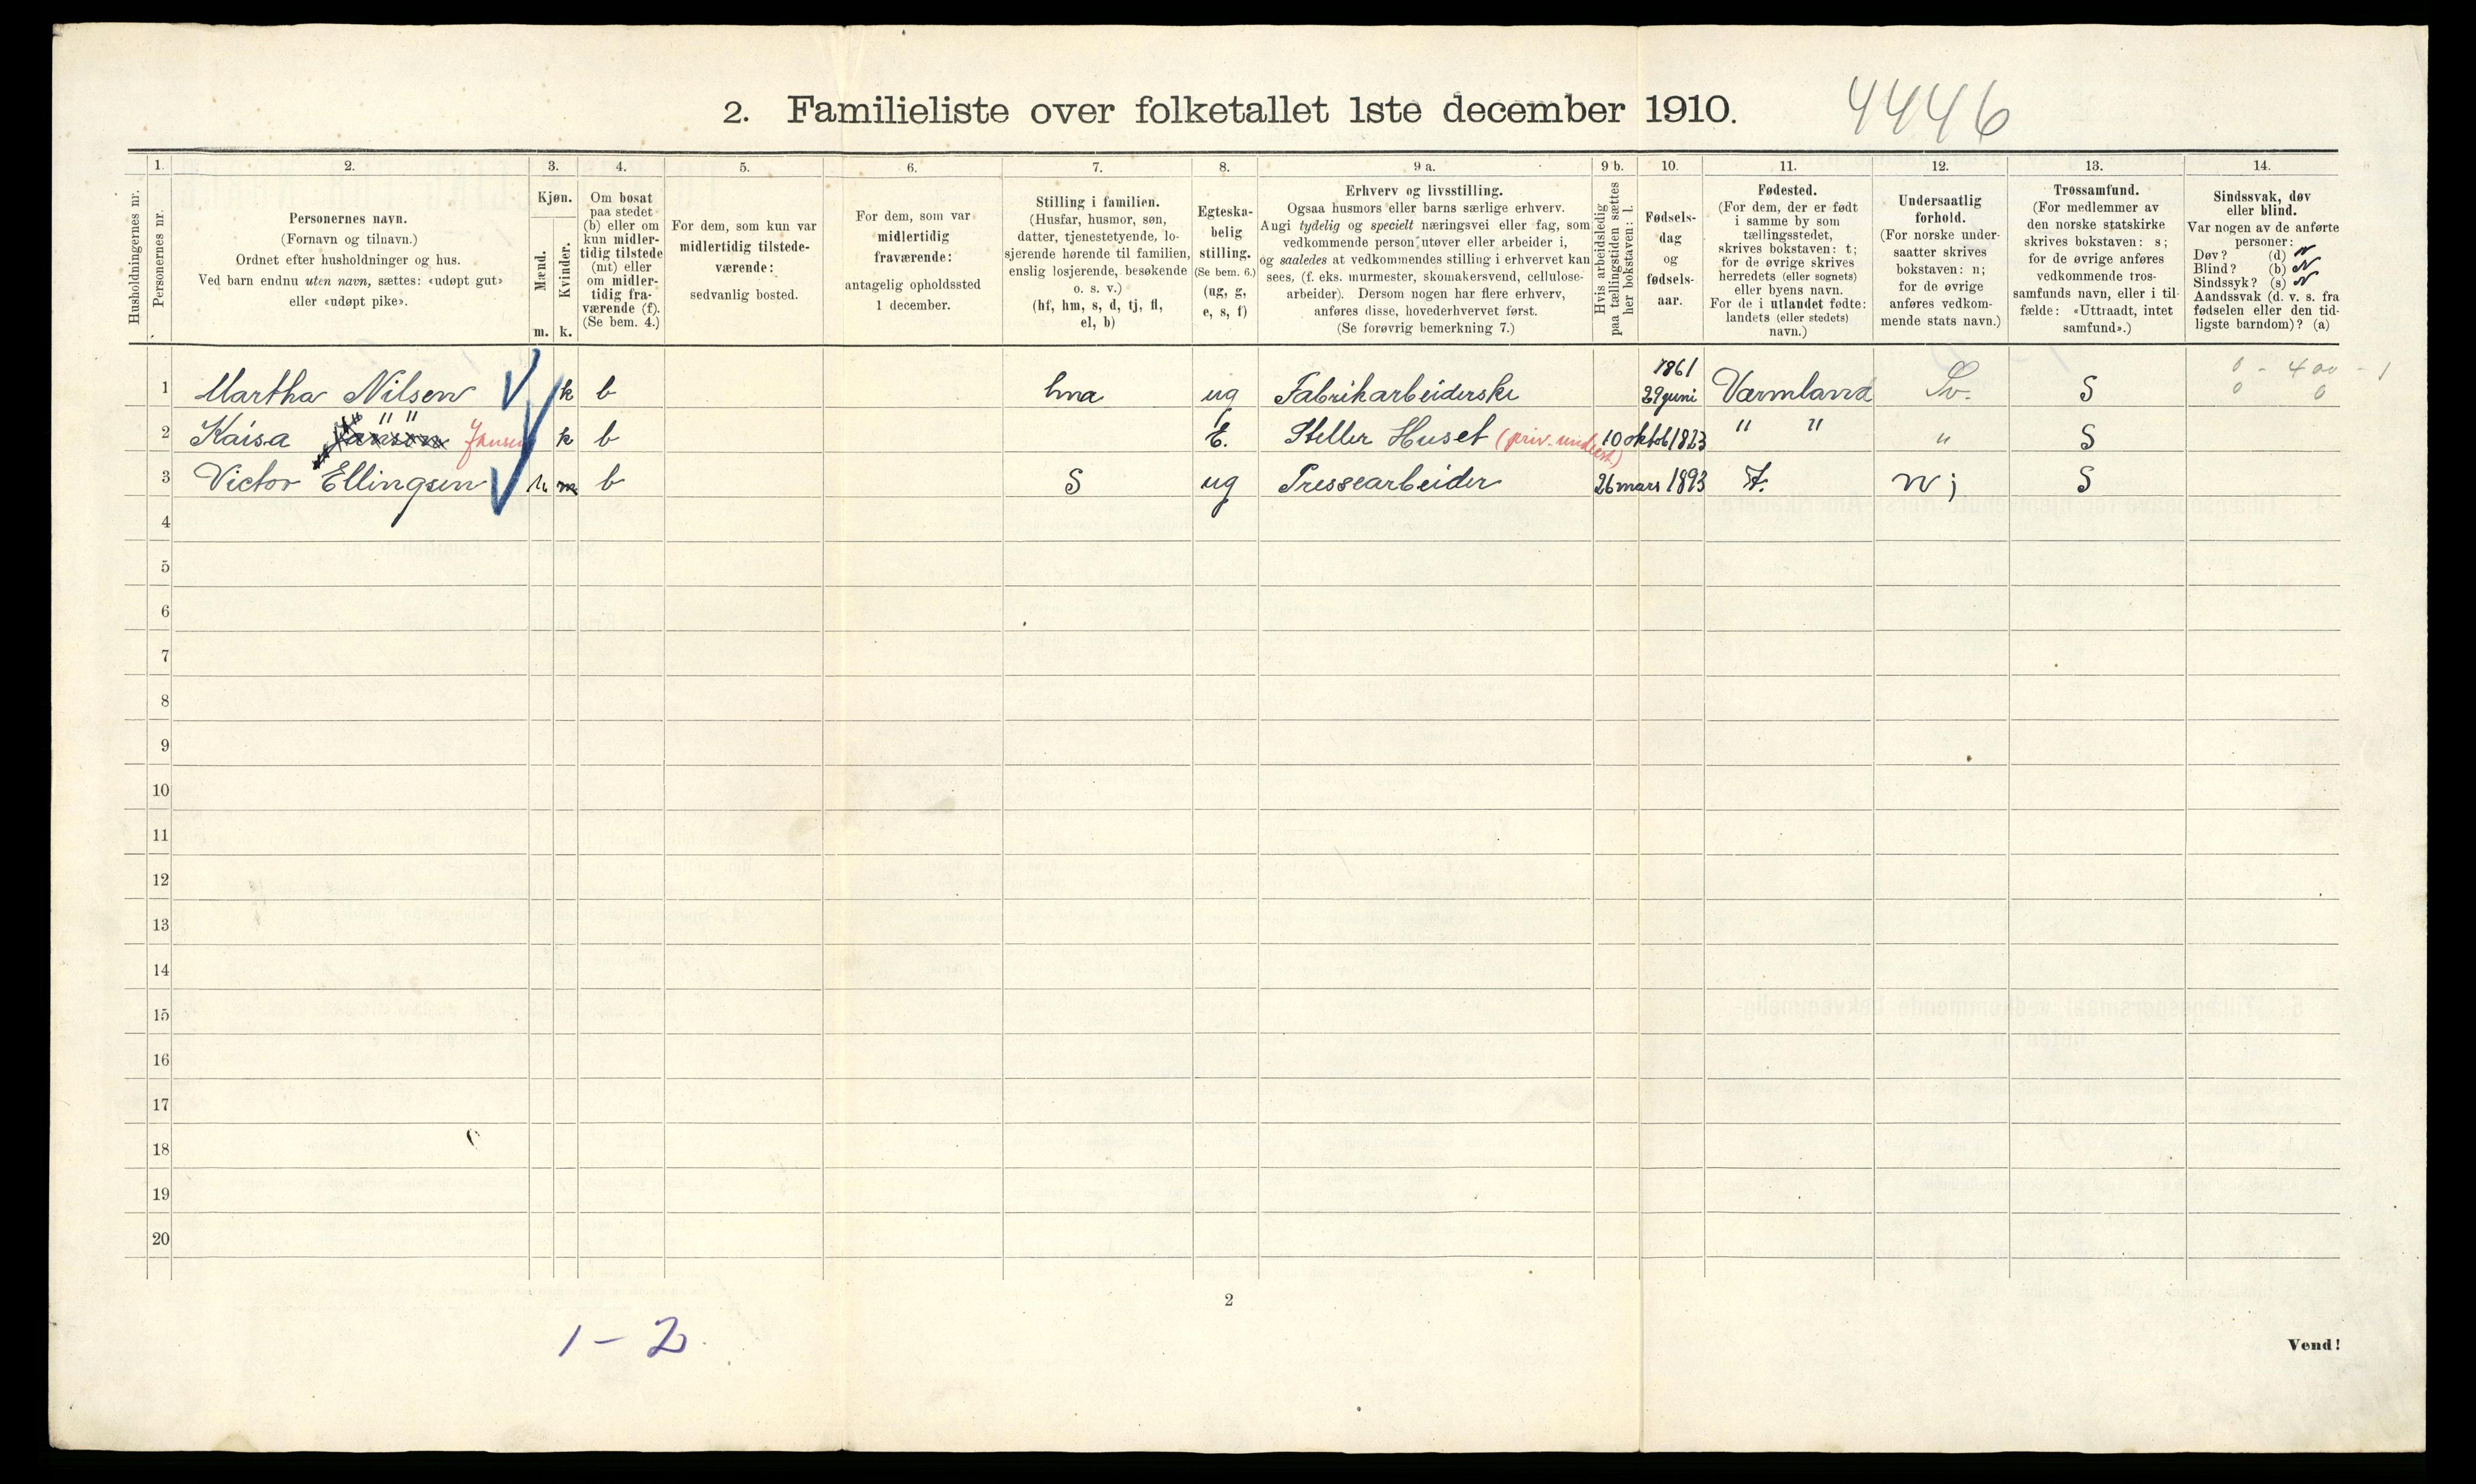 2. Familieliste over folketallet 1ste december 1910. 4446
Husholdningernes nr.
1. Personernes nr.
2. Personernes navn.
(Fornavn og tilnavn.)
Ordnet efter husholdninger og hus.
Ved barn endnu uten navn, sættes: «udøpt gut»
eller «udøpt pike».
3. Kjøn.
Mænd. m.
Kvinder. k.
4. Om bosat
paa stedet
(b) eller om
kun midler-
tidig tilstede
(mt) eller
om midler-
tidig fra-
værende (f).
(Se bem. 4.)
5. For dem, som kun var
midlertidig tilstede-
værende:
sedvanlig bosted.
6. For dem, som var
midlertidig
fraværende:
antagelig opholdssted
1 december.
7. Stilling i familien.
(Husfar, husmor, søn,
datter, tjenestetyende, lo-
sjerende hørende til familien,
enslig losjerende, besøkende
o. s. v.)
(hf, hm, s, d, tj, fl,
el, b)
8. Egteska-
belig
stilling.
(Se bem. 6.)
(ug, g,
e, s, f)
9 a. Erhverv og livsstilling.
Ogsaa husmors eller barns særlige erhverv.
Angi tydelig og specielt næringsvei eller fag, som
vedkommende person utøver eller arbeider i,
og saaledes at vedkommendes stilling i erhvervet kan
sees, (f. eks. murmester, skomakersvend, cellulose-
arbeider). Dersom nogen har flere erhverv,
anføres disse, hovederhvervet først.
(Se forøvrig bemerkning 7.)
9 b. Hvis arbeidsledig
paa tællingstiden sættes
her bokstaven: l.
10. Fødsels-
dag
og
fødsels-
aar.
11. Fødested.
(For dem, der er født
i samme by som
tællingsstedet,
skrives bokstaven: t;
for de øvrige skrives
herredets (eller sognets)
eller byens navn.
For de i utlandet fødte:
landets (eller stedets)
navn.)
12. Undersaatlig
forhold.
(For norske under-
saatter skrives
bokstaven: n;
for de øvrige
anføres vedkom-
mende stats navn.)
13. Trossamfund.
(For medlemmer av
den norske statskirke
skrives bokstaven: s;
for de øvrige anføres
vedkommende tros-
samfunds navn, eller i til-
fælde: «Uttraadt, intet
samfund».)
14. Sindssvak, døv
eller blind.
Var nogen av de anførte
personer:
Døv? (d) N
Blind? (b) N
Sindssyk? (s) N
Aandssvak (d. v. s. fra
fødselen eller den tid-
ligste barndom)? (a)
0 - 400 - 1
0 0
1 Martha Nilsen k b hma ug Fabrikarbeiderske 1861 29 juni Värmland Sv. S
2 Kaisa " " Jansen k b E. Steller Huset (priv. underst) 10 oktob 1823 " " " S
3 Victor Ellingsen m b S ug Pressearbeider 26 mars 1893 t. n; S
4
5
6
7
8
9
10
11
12
13
14
15
16
17
18
19
20
2
1-2
Vend!